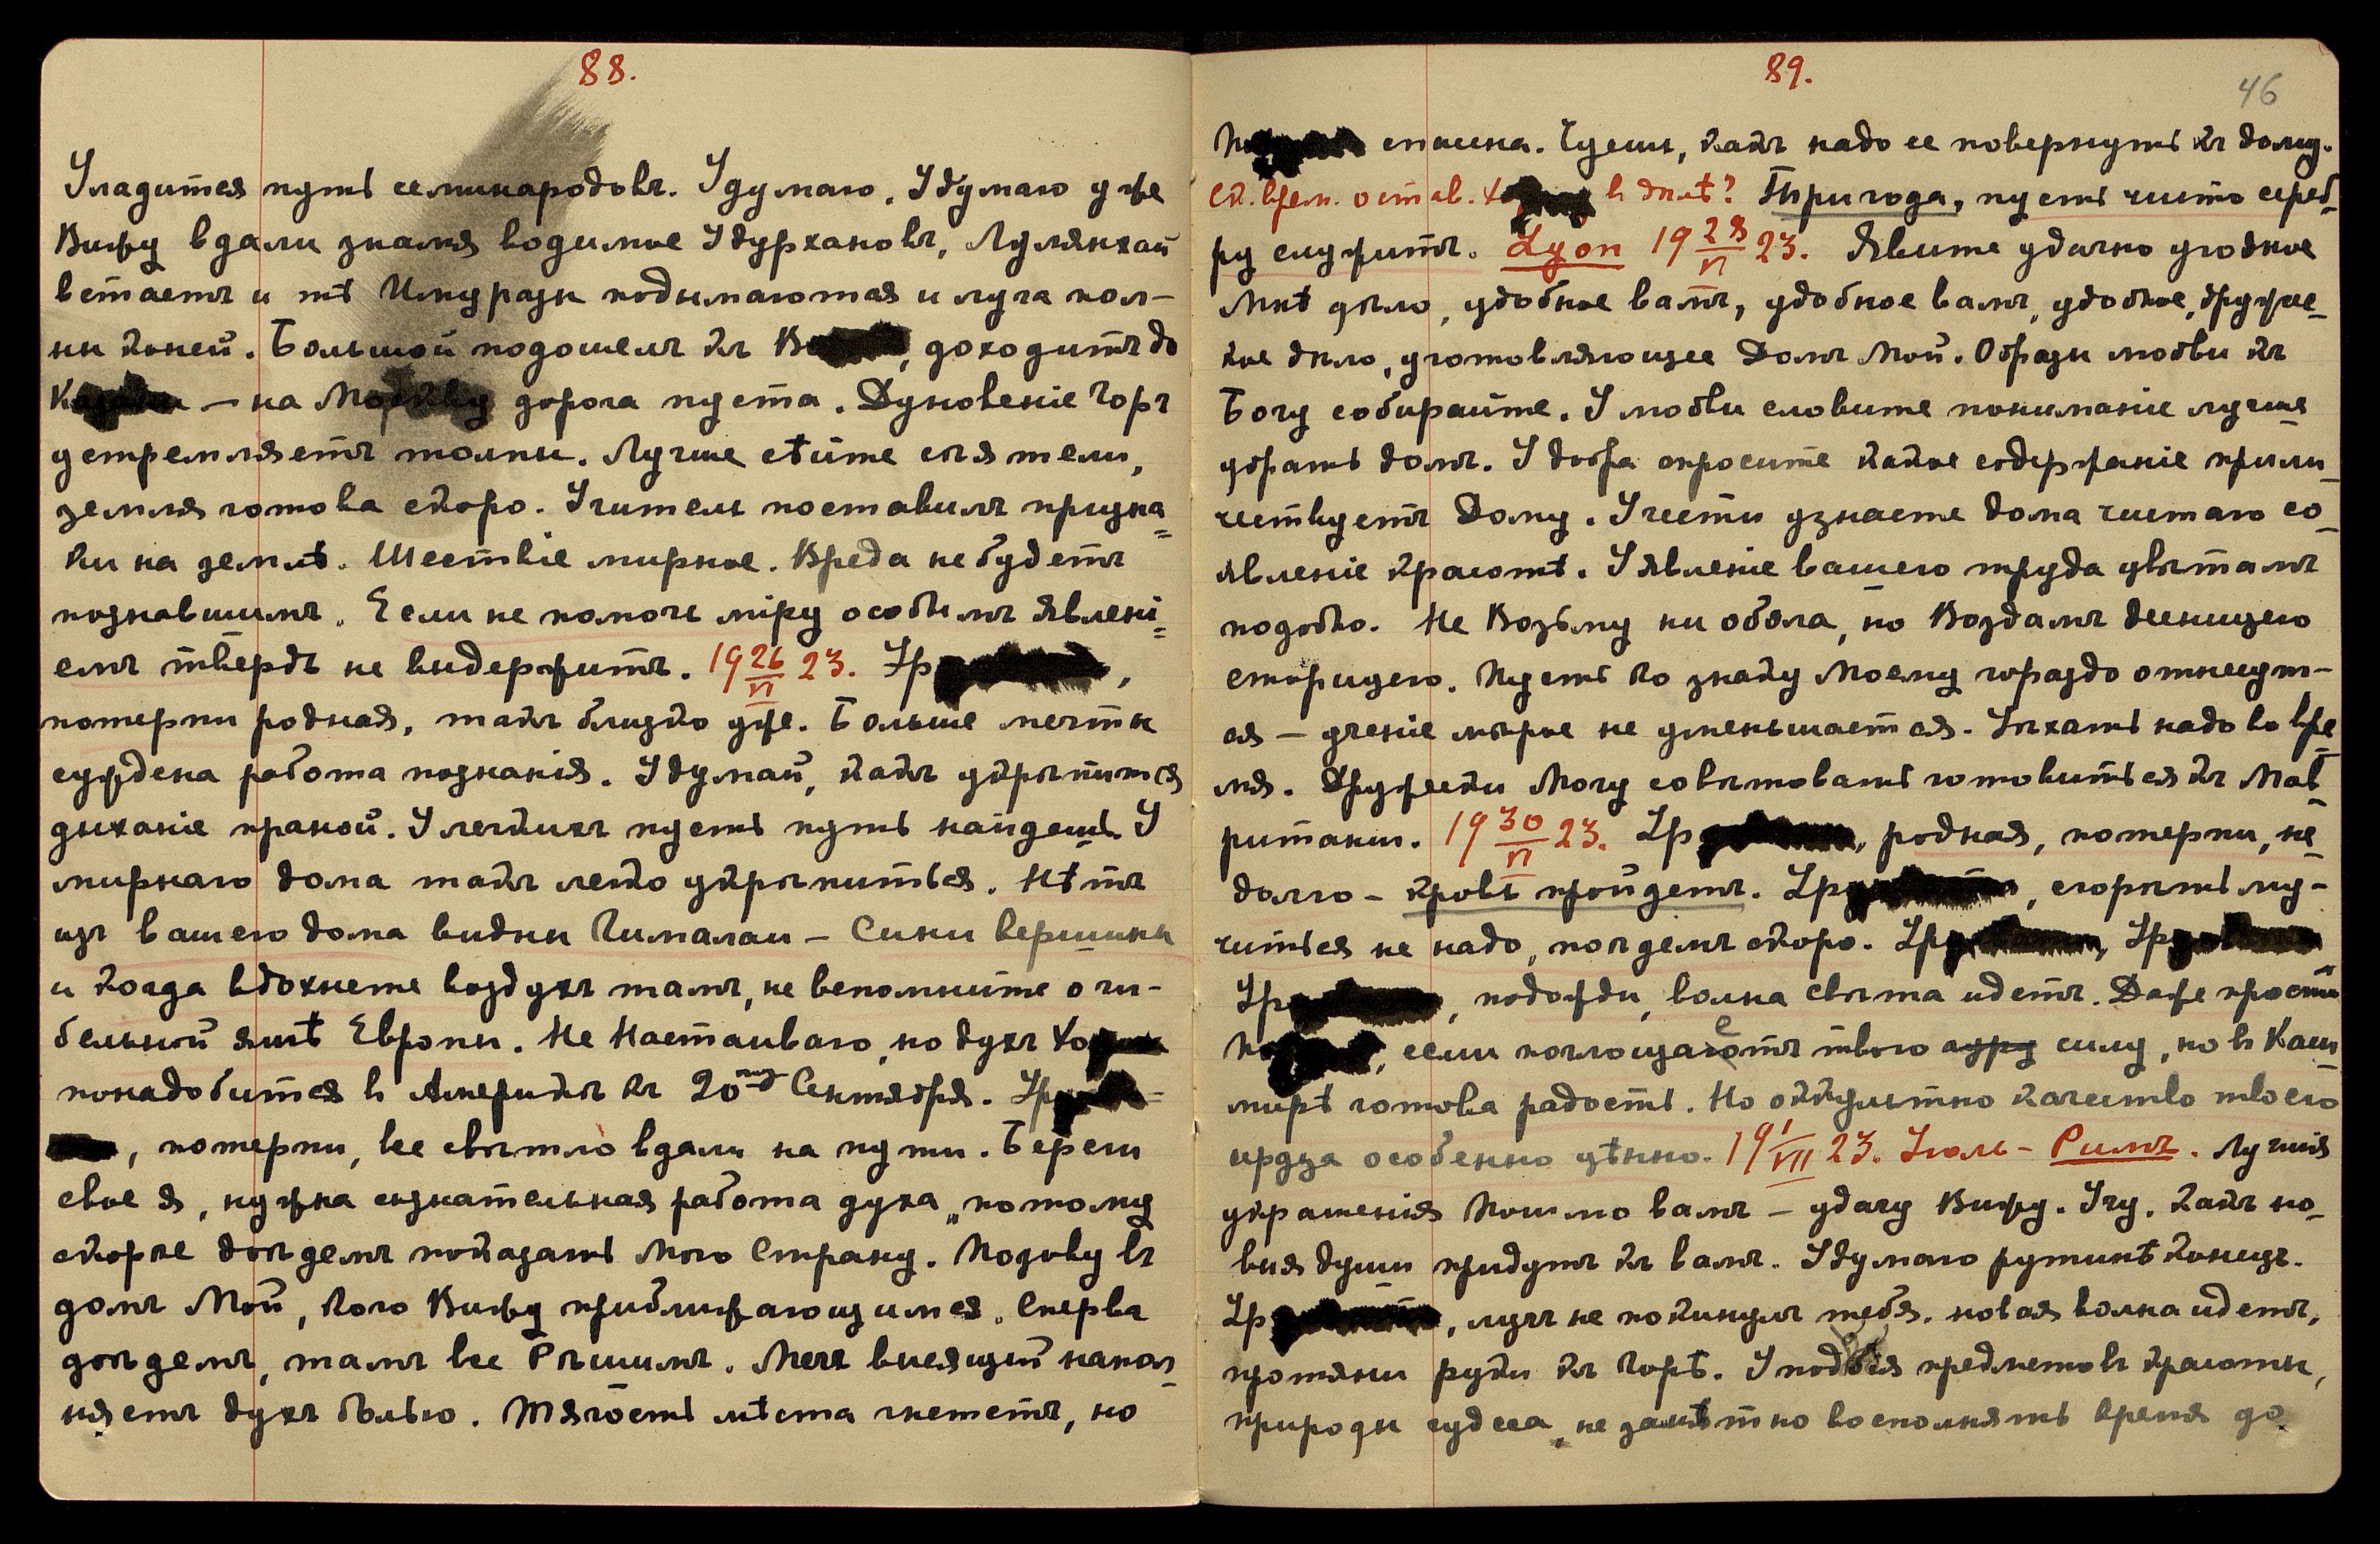 88.
Уладится путь семинародовъ. Удумаю, Удумаю уже
Вижу вдали знамя водимое Удурхановъ, Лумянхай
встаетъ и тѣ Имуразы подымаются и луга пол-
ны коней. Большой подошелъ къ, доходитъ до
— на Москву дорога пуста. Дуновеніе Горъ
устремляетъ толпы. Лучше сѣйте сѣятели,
земля готова скоро. Учитель поставилъ призна=
ки на землѣ. Шествіе мирное. Вреда не будетъ
познавшимъ. Если не помочь міру особымъ явлені=
емъ твердь не выдержитъ. 19 26/VI 23. Ур,
потерпи родная, такъ близко уже. Больше мечты
суждена работа познанія. Удумай, какъ укрѣпится
дыханіе праной. У легкихъ пусть путь найдешь. У
мирнаго дома такъ легко укрѣпиться. Нѣтъ
изъ вашего дома видны Гималаи — Сини вершины
и когда вдохнете воздухъ тамъ, не вспомните о ги-
бельной ямѣ Европы. Не Настаиваю, но духъ
понадобится въ Америкѣ къ 20му Сентября. Ур
, потерпи, все свѣтло вдали на пути. Береги
свое я, нужна сознательная работа духа, потому
скорѣе доѣдемъ показать Мою Страну. Позову въ
домъ Мой, кого Вижу приближающимся. Сперва
доѣдемъ, тамъ все Рѣшимъ. Мечъ висящій напол-
няетъ духъ болью. Тягость мѣста гнететъ, но
89.
46
спина. Чуешь, какъ надо ее повернуть къ дому.
Ск. врем. остав. въ домѣ? Три года, пусть чисто сереб-
ру служитъ. Lyon 19 28/VI 23. Явите удачно угодное
Мнѣ дѣло, удобное вамъ, удобное вамъ, удобное, дружес-
кое дѣло, уготовляющее Домъ Мой. Образы любви къ
Богу собирайте. У любви словите пониманіе лучше
убрать домъ. У добра спросите какое содержаніе прили-
чествуетъ Дому. У чести узнаете дома чистаго со-
явленіе красотѣ. У явленіе вашего труда цвѣтамъ
подобно. Не Возьму ни обола, но Воздамъ десницею
сторицею. Пусть ко знаку Моему гораздо отнесут-
ся — ученіе мѣрое не уменьшается. Уѣхать надо во вре-
мя. Дружески Могу совѣтовать готовиться къ Мав-
ританіи. 19 30/VI 23. Ур, родная, потерпи, не-
долго — кровь пройдетъ. Ур, сгорѣть му-
читься не надо, поѣдемъ скоро. Ур, Ур
Ур, подожди, волна свѣта идетъ. Даже прости
, если поглощаетъ твою ауру силу, но въ Каш-
мирѣ готова радость. Но оккультно качество твоего
сердца особенно цѣнно. 19 1/VII 23. Июль — Римъ. Лучшія
украшенія Пошлю вамъ — удачу Вижу. Учу, какъ но-
выя души придутъ къ вамъ. Удумаю рутинѣ конецъ.
Ур, лучъ не покинулъ тебя, новая волна идетъ,
протяни руки къ Горѣ. У подобія предметовъ красоты,
природы чудеса, не замѣтно восполнять время до